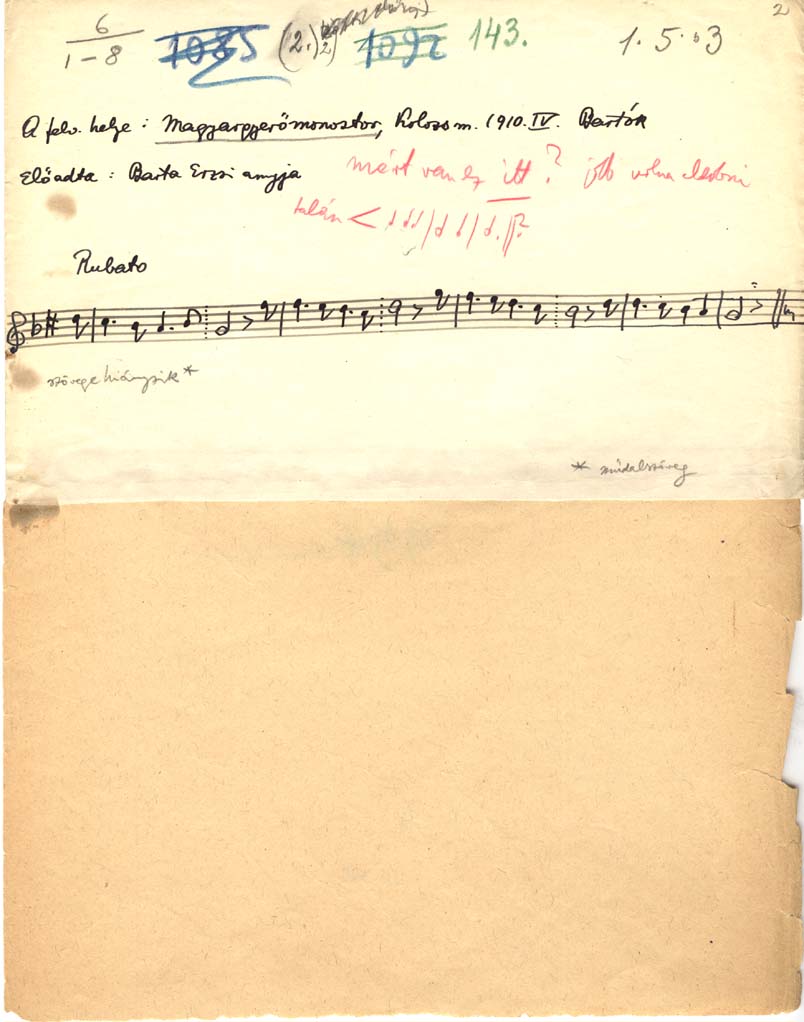 2
6
1-8 1085 (2.) 1092 143. 1.5.03
A felv. helye: Magyargyerőmonostor, Kolozs m. 1910. IV. Bartók
Előadta: Barta Erzsi anyja
mért van ez itt? jobb volna
talán <
Rubato
szövege hiányzik *
* műdalszöveg